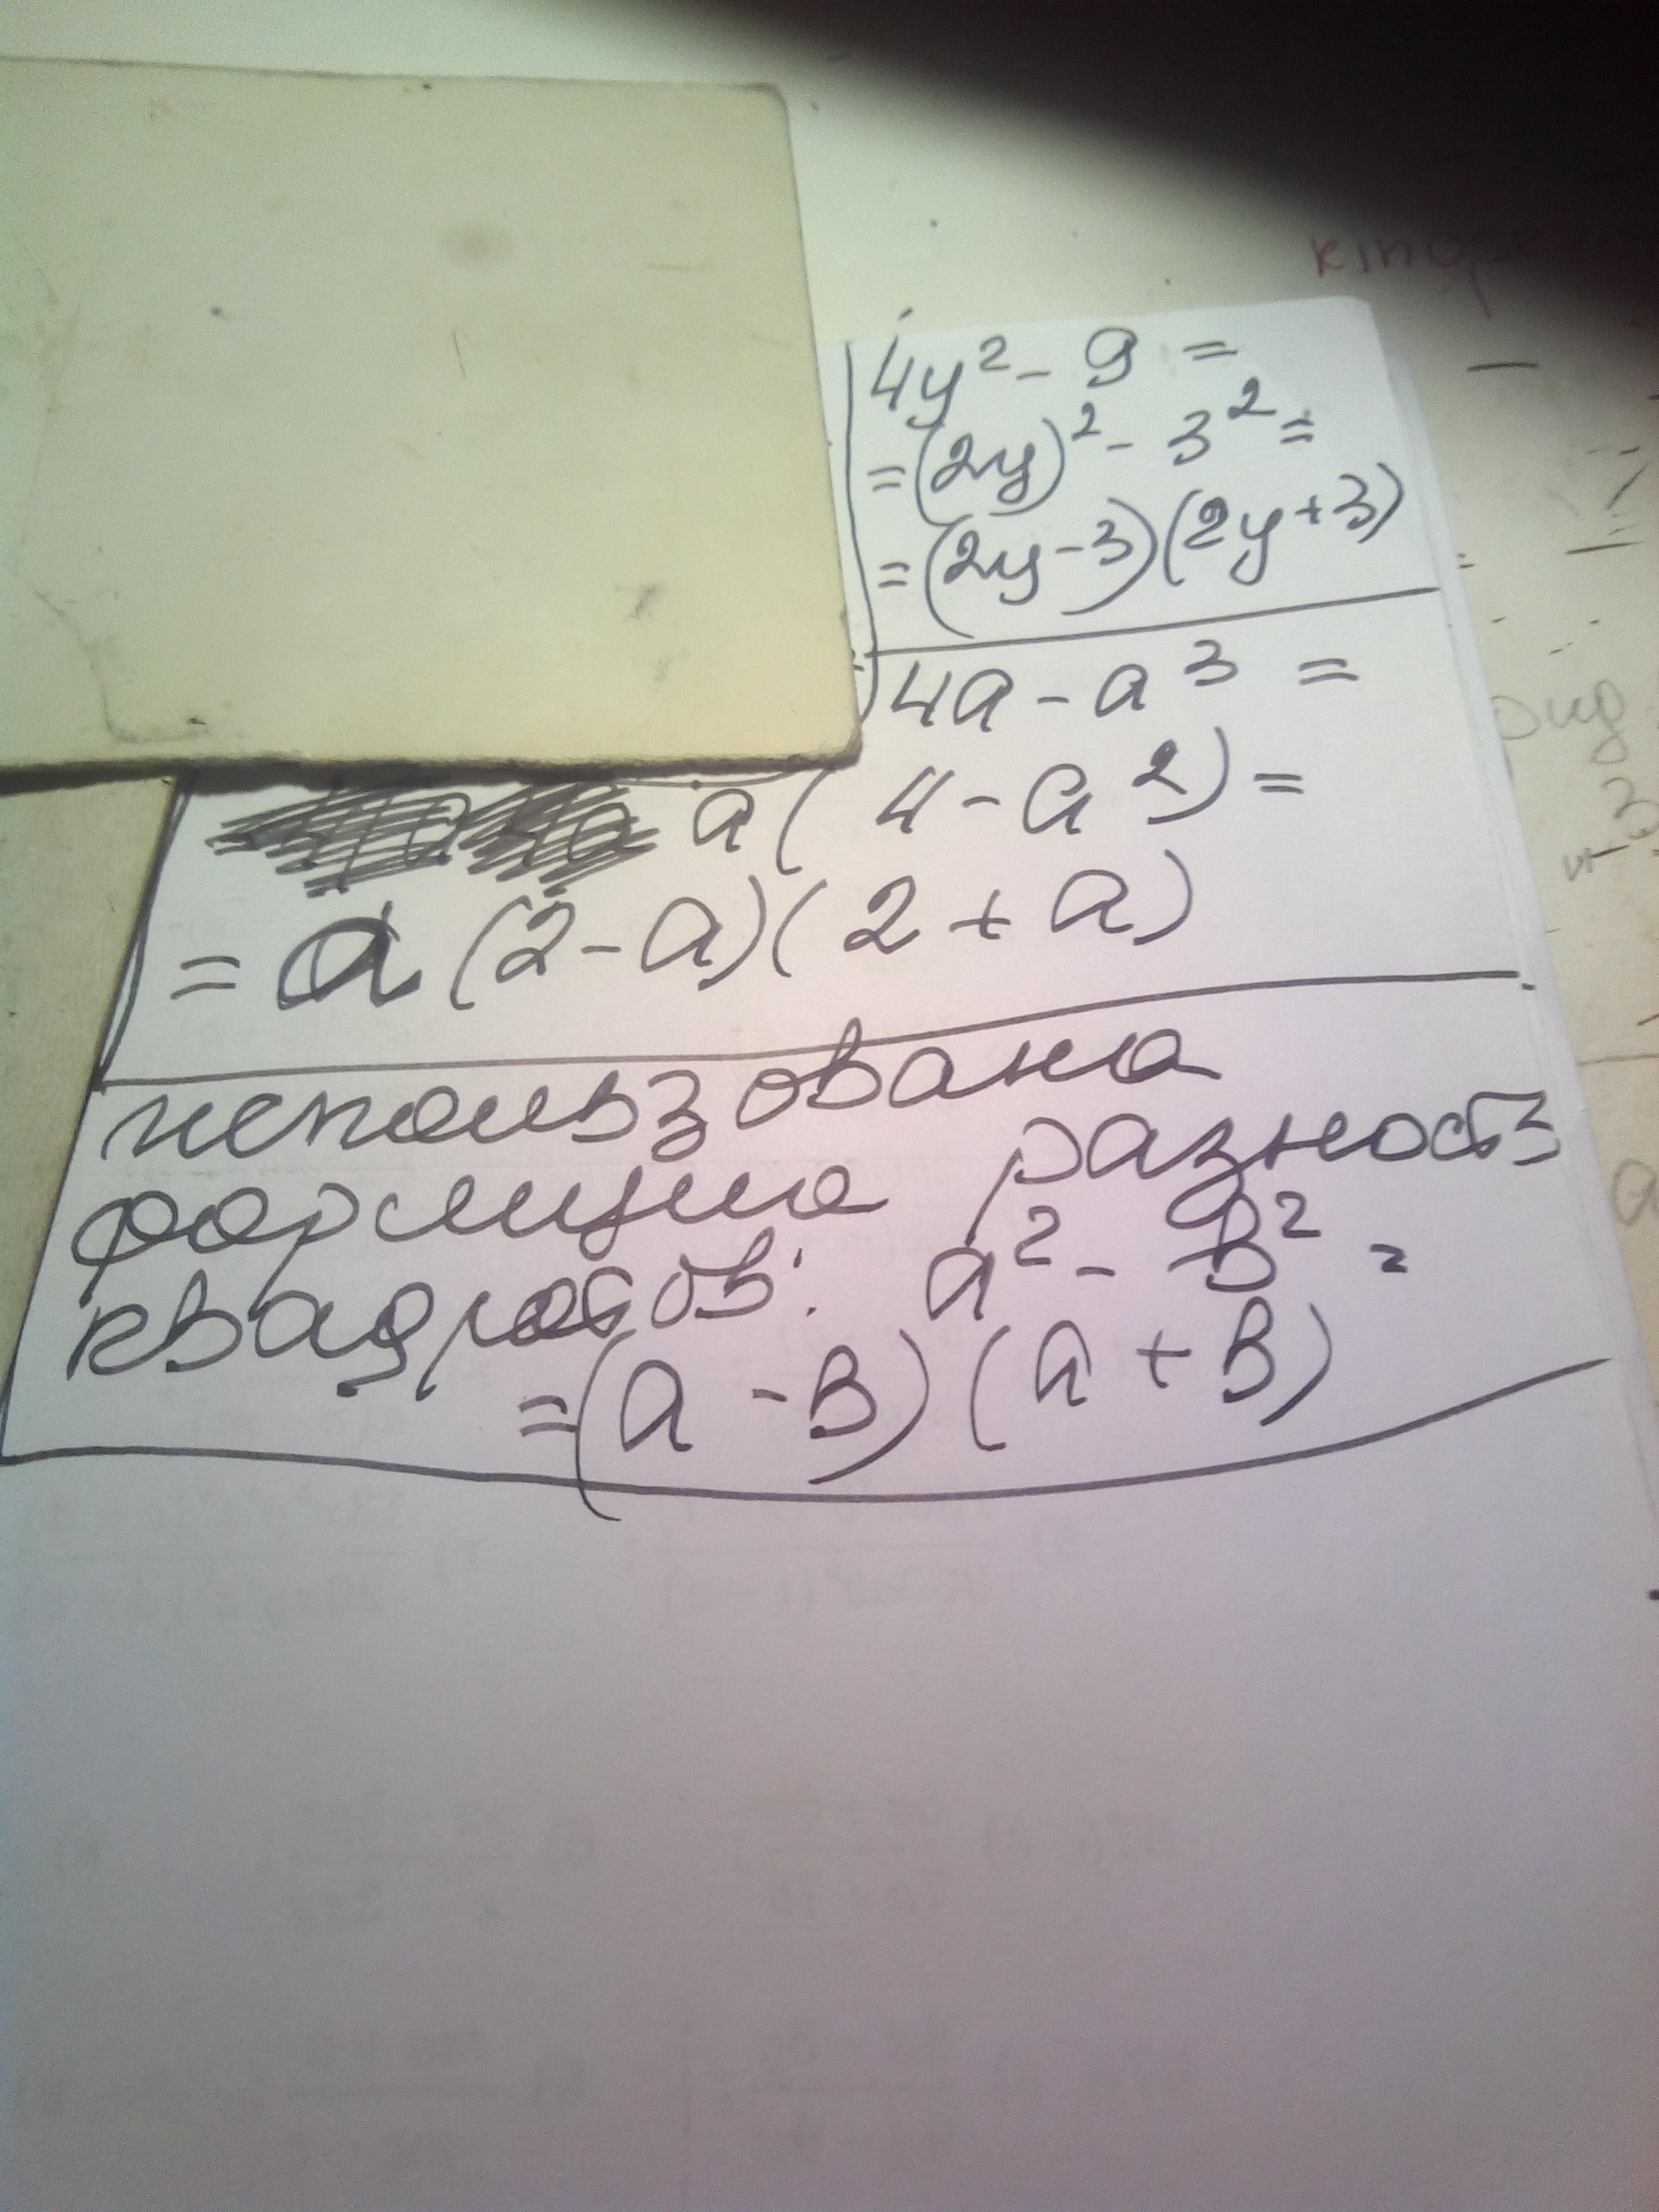 4y² - 9 =
= (2y)² - 3² =
= (2y - 3)(2y + 3)
4a - a³ =
a(4 - a²) =
= a(2 - a)(2 + a)
использована
формула разность
квадратов: a² - в² =
= (a - в)(a + в)